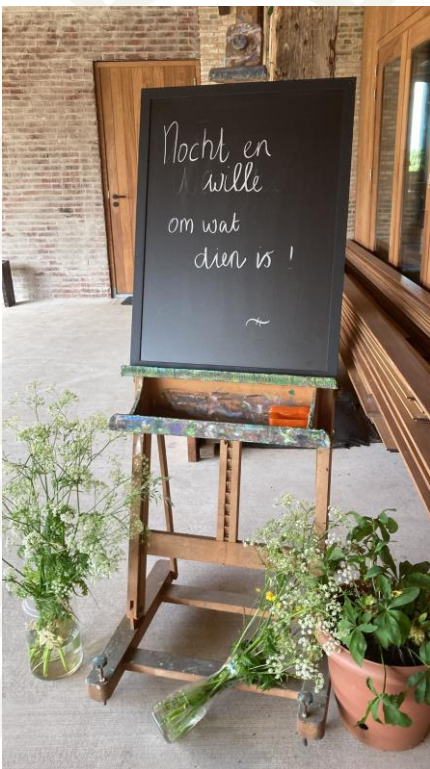 Nocht en
wille
om wat
dien is !